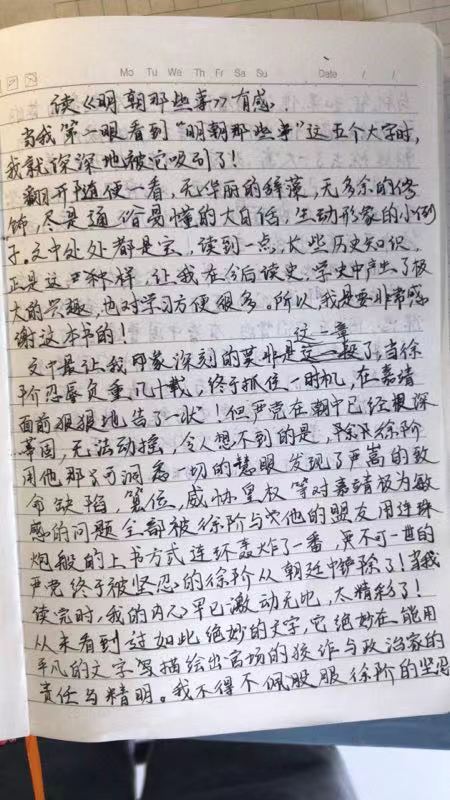 Mo Tu We Th Fr Sa Su Date / /
读《明朝那些事》有感
当我第一眼看到“明朝那些事”这五个大字时,
我就深深地被它吸引了!
翻开随便一看,无华丽的辞藻,无多余的修
饰,尽是通俗易懂的大白话,生动形象的小例
子。文中处处都是宝,读到一点,长些历史知识
正是这一种样,让我在今后读史,学史中产生了极
大的兴趣,也对学习方便很多。所以,我是要非常感
谢这本书的!
这一章
文中最让我印象深刻的莫非是了,当徐
阶忍辱负重几十载,终于抓住一时机,在嘉靖
面前狠狠地告了一状!但严嵩在朝中已经根深
蒂固,无法动摇,令人想不到的是,徐阶
用他那可洞悉一切的慧眼发现了严嵩的致
命缺陷,篡位,威胁皇权等对嘉靖极为敏
感的问题全部被徐阶与他的盟友用连珠
炮般的上书方式连环轰炸了一番,莫不可一世的
严党终于被坚忍的徐阶从朝廷中铲除了!当我
读完时,我的内心早已激动无比,太精彩了!
从未看到过如此绝妙的文字,它绝妙在能用
平凡的文字描绘出官场的操作与政治家的
责任与精明。我不得不佩服徐阶的坚忍